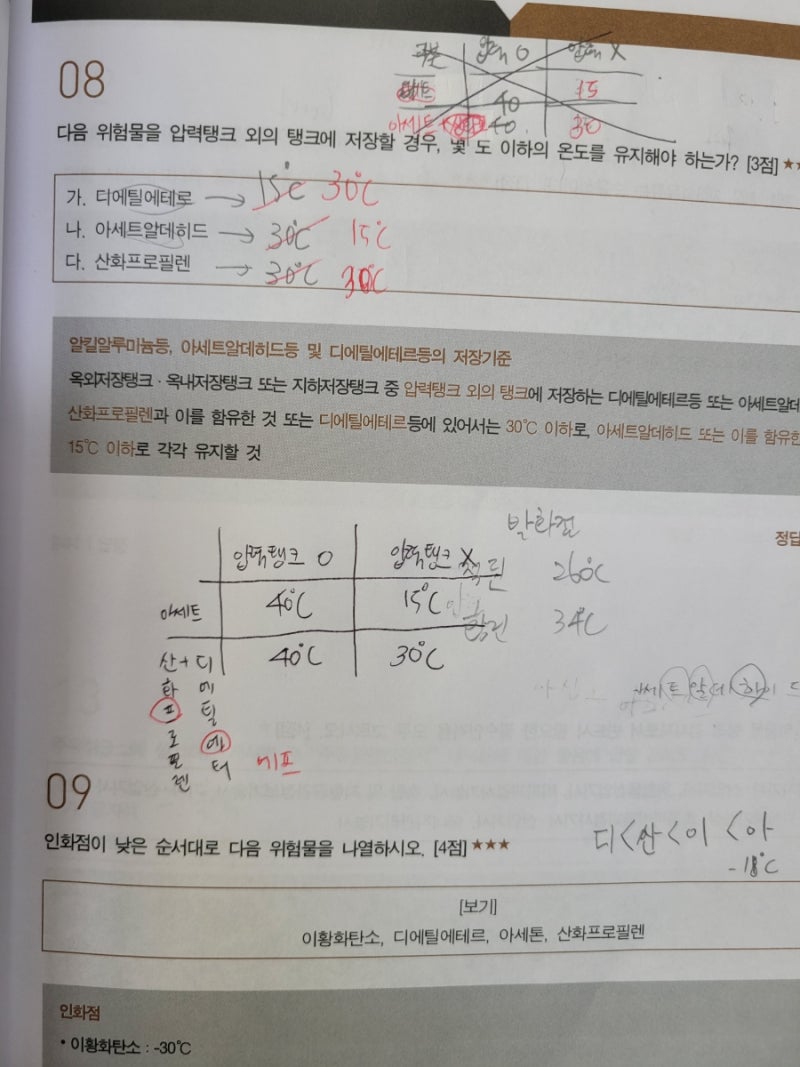 압력 O 압력 X
40 15
40 30
08
다음 위험물을 압력탱크 외의 탱크에 저장할 경우, 몇 도 이하의 온도를 유지해야 하는가? [3점] ★
가. 디에틸에테로 → 15℃ 30℃
나. 아세트알데히드 → 30℃ 15℃
다. 산화프로필렌 → 30℃ 30℃
알킬알루미늄등, 아세트알데히드등 및 디에틸에테르등의 저장기준
옥외저장탱크 · 옥내저장탱크 또는 지하저장탱크 중 압력탱크 외의 탱크에 저장하는 디에틸에테르등 또는 아세트알데
산화프로필렌과 이를 함유한 것 또는 디에틸에테르등에 있어서는 30℃ 이하로, 아세트알데히드 또는 이를 함유한
15℃ 이하로 각각 유지할 것
정답
발화점
압력탱크 O 압력탱크 X
260℃
아세트 40℃ 15℃
34℃
산화프로필렌 + 디에틸에터 40℃ 30℃
에프
09
인화점이 낮은 순서대로 다음 위험물을 나열하시오. [4점] ★★★
디<산<이<아
-18℃
[보기]
이황화탄소, 디에틸에테르, 아세톤, 산화프로필렌
인화점
• 이황화탄소 : -30℃